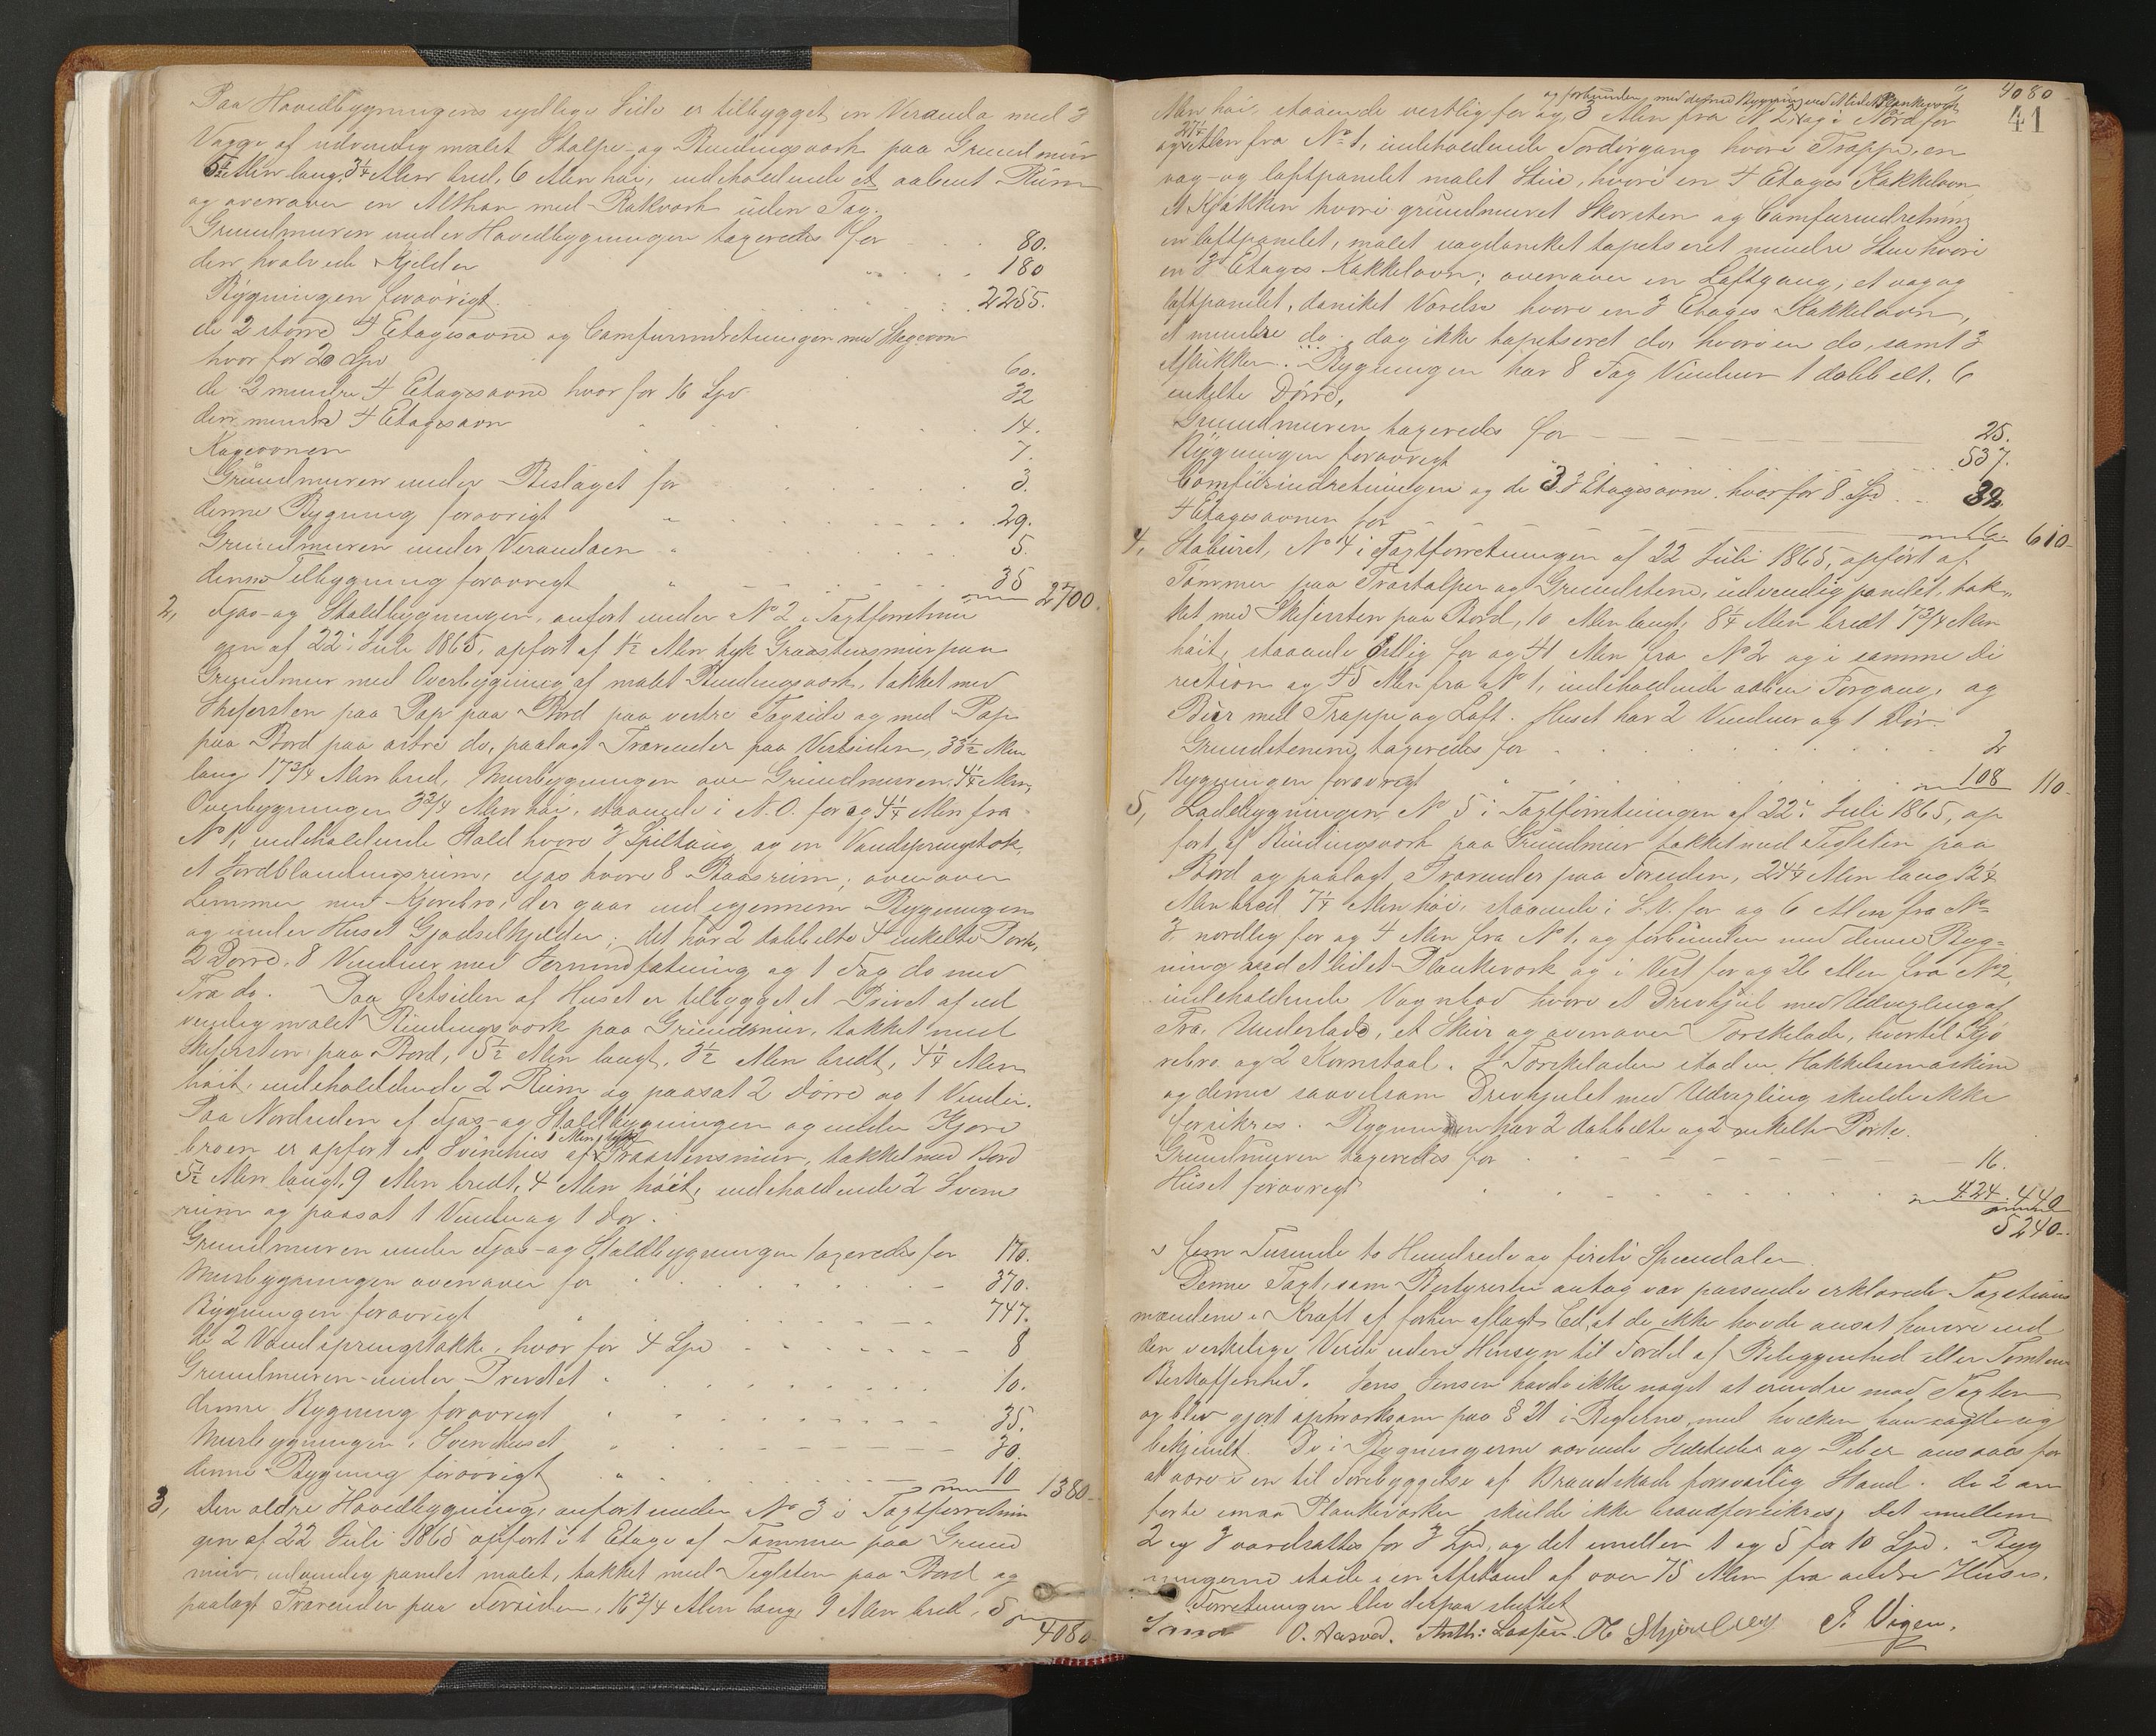 Paa Hovedbygningens sydlige Side er tilbygget en Veranda med 3
Vægge af udvendig malet Stolpe- og Bindingsværk paa Grundmuur
5½ Alen lang, 3¼ Alen bred, 6 Alen høi, indeholdende et aabent Rum
og ovenover en Althan med Rækværk uden Tag.
Grundmuren under Hovedbygningen taxeredes for 80.
den hvælvede Kjelder " 180
Bygningen forøvrigt 2255.
de 2 større 4 Etagesovne og Comfurindretningen med Stegeovn
hver for 20 Spd 60.
de 2 mindre 4 Etagesovne hver for 16 Spd. 32
den mindre 4 Etagesovn " 14.
Kageovnen " 7.
Grundmuren under Bislaget for 3.
denne Bygning forøvrigt " 29.
Grundmuren under Verandaen " 5.
denne Tilbygning forøvrigt " 35 2700.
2, Fjøs- og Staldbygningen, anført under No 2 i Taxtforretnin
gen af 22 Juli 1865, opført af 1½ Alen tyk Graastensmur paa
Grundmur med Overbygning af malet Bindingsværk, takket med
Skifersten paa Pap paa Bord paa vestre Tagside og med Pap
paa Bord paa østre do, paalagt Trærender paa Vestsiden, 33½ Alen
lang 17¾ Alen bred, Murbygningen over Grundmuren 4¼ Alen,
Overbygningen 3¾ Alen høi, staaende i N.O. for og 4¼ Alen fra
No 1, indeholdende Stald hvori 3 Spiltaug og en Vandspringstok,
et Fordblandingsrum, Fjøs hvori 8 Baasrum; ovenover
Lemmer med Kjørebro, der gaar ind igjennem Bygningen
og under Huset Gjødselkjelder; det har 2 dobbelte 4 enkelte Porte,
2 Dørre, 8 Vinduer med Jernindfatning og 1 Fag do med
Træ do. Paa Østsiden af Huset er tilbygget et Privet af ud
vendig malet Bindingsværk paa Grundmur, takket med
Skifersten paa Bord, 5½ Alen langt, 3½ Alen bredt, 4¼ Alen
høit, indeholdende 2 Rum og paasat 2 Dørre og 1 Vindu.
Paa Nordsiden af Fjøs- og Staldbygningen og under Kjøre
broen er opført et Svinehus af 1 Alen tyk Graastensmur, takket med Bord
5½ Alen langt, 9 Alen bredt, 4 Alen høit, indeholdende 2 Svine
rum og paasat 1 Vindu og 1 Dør.
Grundmuren under Fjøs- og Staldbygningen taxeredes for 170.
Murbygningen ovenover for " 370.
Bygningen forøvrigt " 747.
de 2 Vandspringstokke, hver for 4 Spd 8
Grundmuren under Privetet " 10.
denne Bygning forøvrigt " 35.
Murbygningen i Svinehuset " 30.
denne Bygning forøvrigt " 10 1380
3, Den ældre Hovedbygning, anført under No 3 i Taxtforretnin
gen af 22 Juli 1865 opført i 1 Etage af Tømmer paa Grund
mur, udvendig panelet malet, takket med Teglsten paa Bord og
paalagt Trærender paa Forsiden, 16¾ Alen lang, 9 Alen bred, 5
4080
4080
41
og forbunden med denne Bygning ved et lidet Plankeværk
Alen høi, staaende vestlig for og 3 Alen fra No 2 og i Nord for
og 27½ Alen fra No 1, indeholdende Fordørgang hvori Trappe, en
væg- og loftpanelet malet Stue, hvori en 4 Etages Kakkelovn
et Kjøkken hvori grundmuret Skorsten og Comfurindretning
en loftpanelet, malet vægdønniket tapetseret mindre Stue hvori
en 3 Etages Kakkelovn; ovenover en Loftgang, et væg og
loftpanelet, dønniket Værelse hvori en 3 Etages Kakkelovn,
et mindre do, dog ikke tapetseret do, hvori en do, samt 3
Aflukker. Bygningen har 8 Fag Vinduer 1 dobbelt, 6
enkelte Dørre.
Grundmuren taxeredes for 25.
Bygningen forøvrigt 537.
Comfurindretningen og de 3 3 Etagesovne, hver for 8 Spd 32.
4 Etagesovnen for 16 610
4, Staburet, No 4 i Taxtforretningen af 22 Juli 1865, opført af
Tømmer paa Træstolper og Grundstene, udvendig panelet, tæk-
ket med Skifersten paa Bord, 10 Alen langt, 8¼ Alen bredt 7¾ Alen
høit, staaende østlig for og 41 Alen fra No 2 og i samme Di
rection og 45 Alen fra No 1, indeholdende aaben Forgang, og
Buer med Trappe og Loft. Huset har 2 Vinduer og 1 Dør.
Grundstenene taxeredes for 2
Bygningen forøvrigt " 108 110
5, Ladebygningen No 5 i Taxtforretningen af 22 Juli 1865, op
ført af Bindingsværk paa Grundmur takket med Teglsten paa
Bord og paalagt Trærender paa Forsiden, 24¼ Alen lang 12¼
Alen bred 7¼ Alen høi, staaende i S.V. for og 6 Alen fra No
3, nordlig for og 4 Alen fra No 1, og forbunden med denne Byg-
ning med et lidet Plankeværk og i Vest for og 26 Alen fra No 2,
indeholdende Vognbod hvori et Drivhjul med Udvexling af
Træ, Underlade, et Skur og ovenover Tærskelade, hvortil Kjø
rebro og 2 Kornstaal. I Tærskeladen stod en Hakkelsemaskine
og denne saavelsom Drivhjulet med Udvexling skulde ikke
forsikres. Bygningen har 2 dobbelte og 2 enkelte Porte.
Grundmuren taxeredes for 16.
Huset forøvrigt 424. 440
5240
s fem Tusinde to Hundrede og firti Speciedaler.
Denne Taxt, som Bestyrelsen antog var passende erklærede Taxations
mændene i Kraft af forhen aflagt Ed, at de ikke havde ansat høiere end
den virkelige Værdi uden Hensyn til Fordel af Beliggenhed eller Tomtens
Beskaffenhed. Jens Jensen havde ikke noget at erindre mod Taxten
og blev gjort opmærksom paa § 21 i Reglerne, med hvilken han sagde sig
bekjendt. De i Bygningerne værende Ildsteder og Piber ansaaes for
at være i en til Forebyggelse af Brandskade forsvarlig Stand. De 2 an
førte smaa Plankeværker skulde ikke brandforsikres, det imellem
2 og 3 værdsattes for 3 Spd, og det imellem 1 og 5 for 10 Spd. Byg
ningerne stode i en Afstand af over 75 Alen fra andre Huse.
Forretningen blev derpaa sluttet
O. Aasved. Anth: Lossius. J. Vigen.